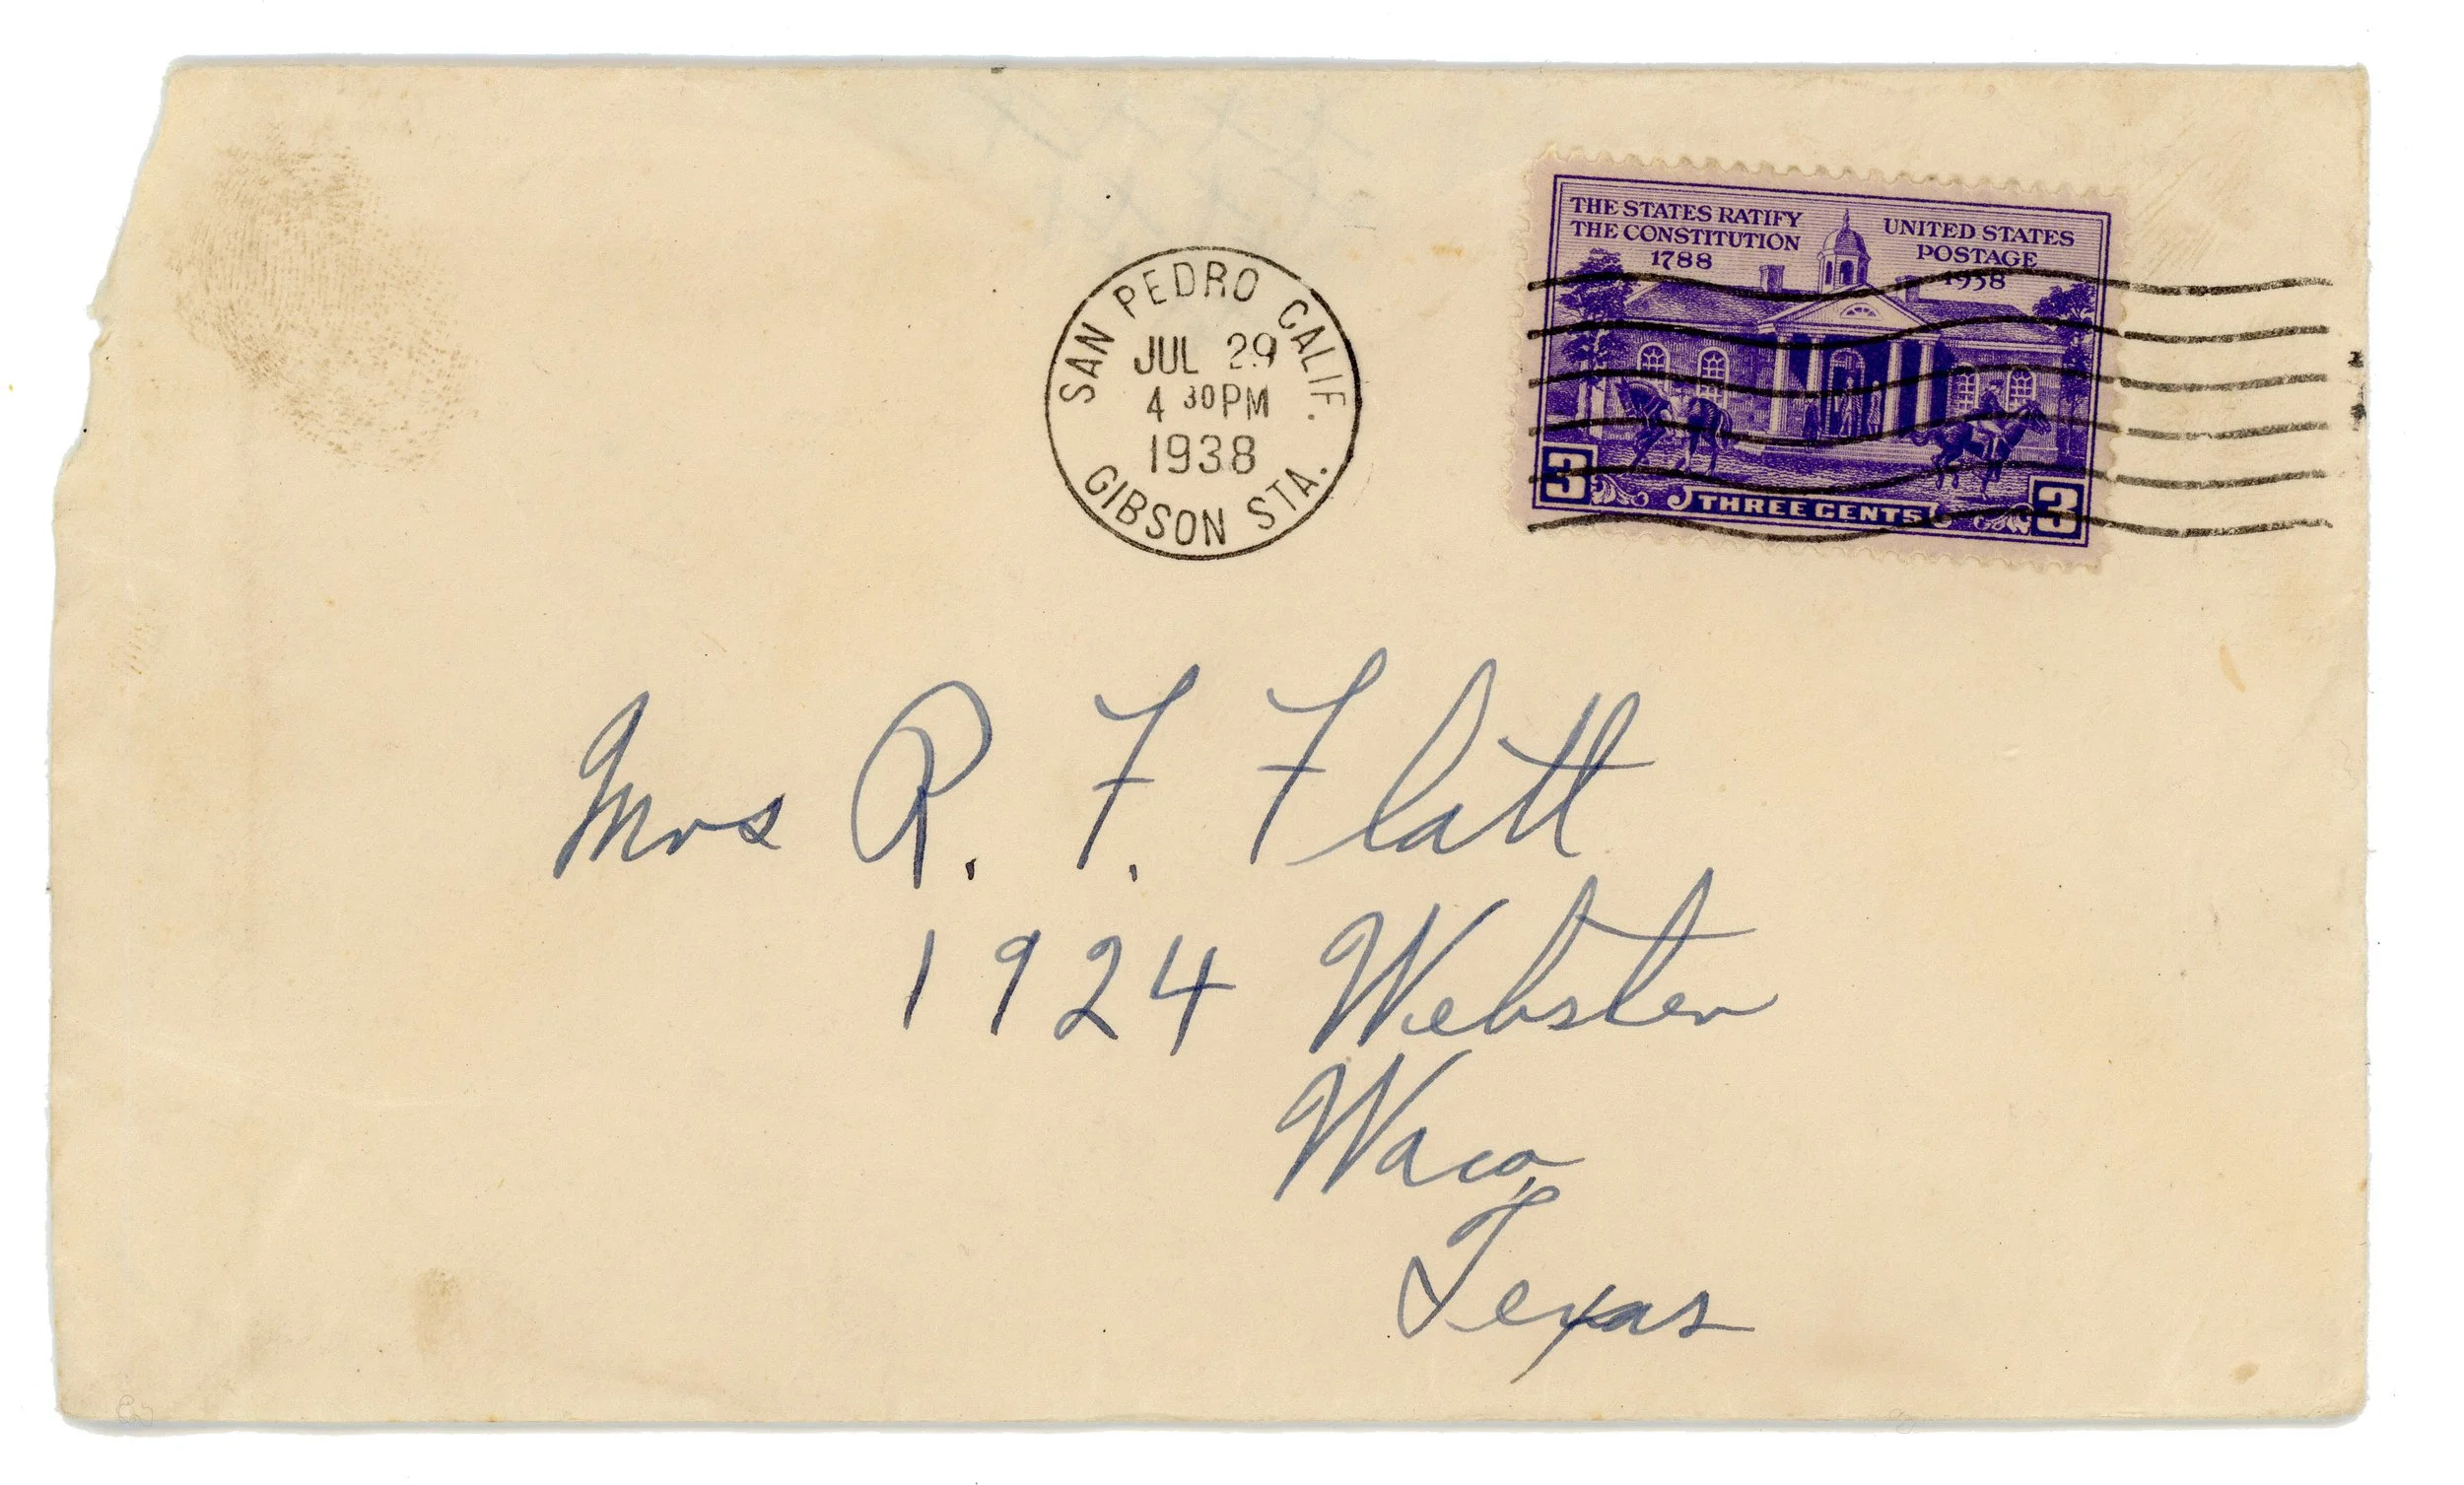 THE STATES RATIFY
THE CONSTITUTION
1788
UNITED STATES
POSTAGE
1938
3 THREE CENTS 3
SAN PEDRO CALIF.
JUL 29
4 30 PM
1938
GIBSON STA.
Mrs R. F. Flatt
1924 Webster
Waco,
Texas